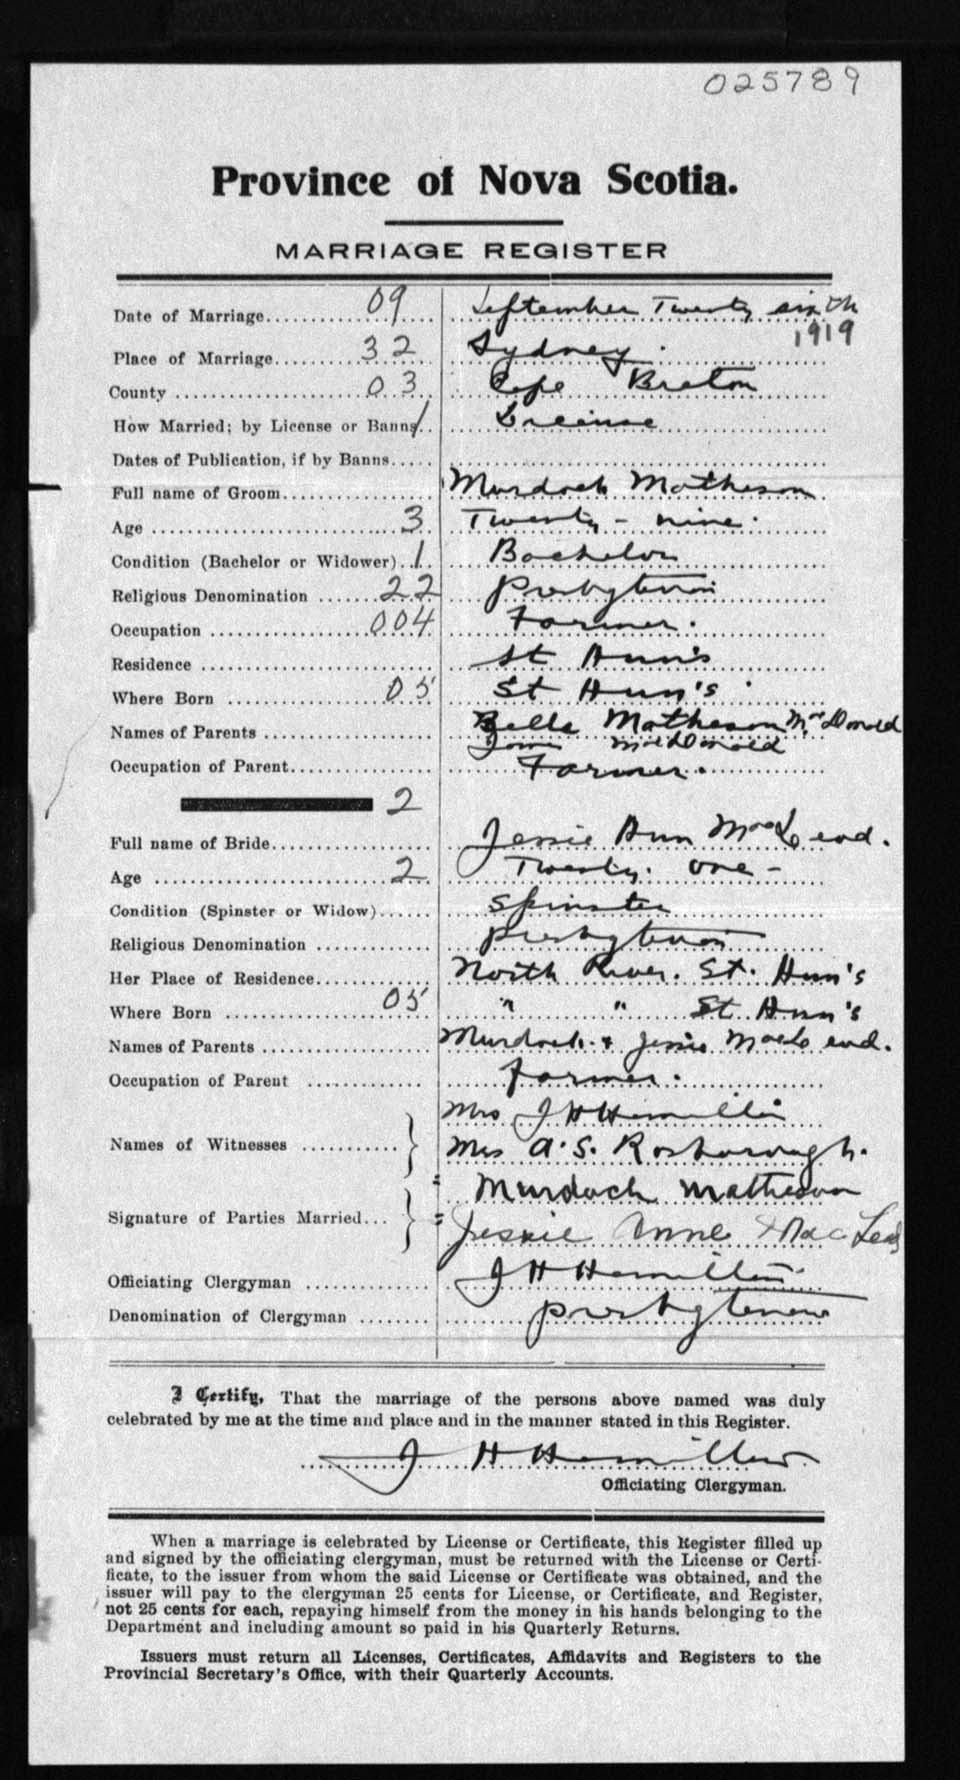 025789
Province of Nova Scotia.
MARRIAGE REGISTER
Date of Marriage 09 September Twenty sixth
1919
Place of Marriage 32 Sydney.
County 03 Cape Breton
How Married; by License or Banns 1 License
Dates of Publication, if by Banns
Full name of Groom Murdoch Matheson
Age 3 Twenty-nine.
Condition (Bachelor or Widower) 1 Bachelor
Religious Denomination 22 Presbyterian
Occupation 004 Farmer.
Residence St Ann's
Where Born 05 St Ann's
Names of Parents Bella Matheson MacDonald
MacDonald
Occupation of Parent Farmer.
2
Full name of Bride Jessie Ann MacLeod.
Age 2 Twenty. one-
Condition (Spinster or Widow) Spinster
Religious Denomination Presbyterian
Her Place of Residence North River. St. Ann's
Where Born 05 " " St Ann's
Names of Parents Murdoch & Jessie MacLeod.
Occupation of Parent Farmer.
Names of Witnesses } Mrs J H Hamilton
Mrs A. S. Rosborough.
Signature of Parties Married... } Murdoch Matheson
Jessie Anne MacLeod
Officiating Clergyman J H Hamilton
Denomination of Clergyman Presbyterian
I Certify, That the marriage of the persons above named was duly
celebrated by me at the time and place and in the manner stated in this Register.
J H Hamilton
Officiating Clergyman.
When a marriage is celebrated by License or Certificate, this Register filled up
and signed by the officiating clergyman, must be returned with the License or Certi-
ficate, to the issuer from whom the said License or Certificate was obtained, and the
issuer will pay to the clergyman 25 cents for License, or Certificate, and Register,
not 25 cents for each, repaying himself from the money in his hands belonging to the
Department and including amount so paid in his Quarterly Returns.
Issuers must return all Licenses, Certificates, Affidavits and Registers to the
Provincial Secretary's Office, with their Quarterly Accounts.